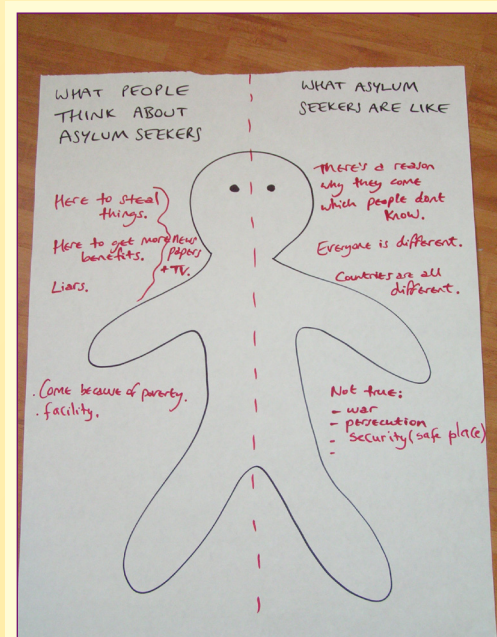 WHAT PEOPLE
THINK ABOUT
ASYLUM SEEKERS
Here to steal
things.
Here to get more
benefits.
Liars.
news
papers
+ TV.
. Come because of poverty.
. facility.
WHAT ASYLUM
SEEKERS ARE LIKE
There's a reason
why they come
which people dont
know.
Everyone is different.
Countries are all
different.
Not true:
- war
- persecution
- security (safe place)
-